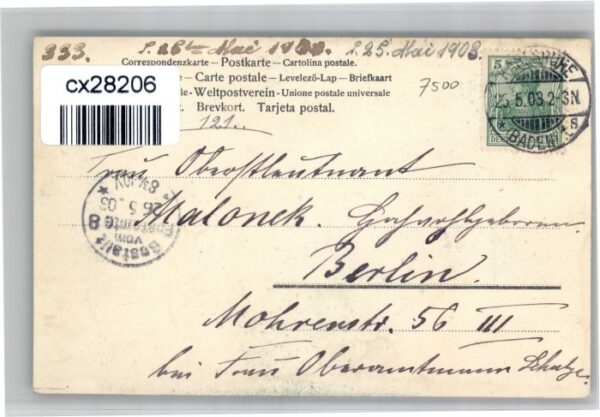 333. s. 26ten Mai 1900. s. 25. Mai 1903.
Correspondenzkarte – Postkarte – Cartolina postale.
– Carte postale – Levelező-Lap – Briefkaart
-Weltpostverein-Union postale universale
Brevkort. Tarjeta postal.
cx28206
7500
5
25.5.03.2-3N.
(BADEN)
* 8
121.
Frau Oberstleutnant
Malonek. Hochwohlgeboren
Berlin.
Mohrenstr. 56 III
bei Frau Oberamtmann Schulze.
Bestellt
vom
Postamte 8
26.5.03